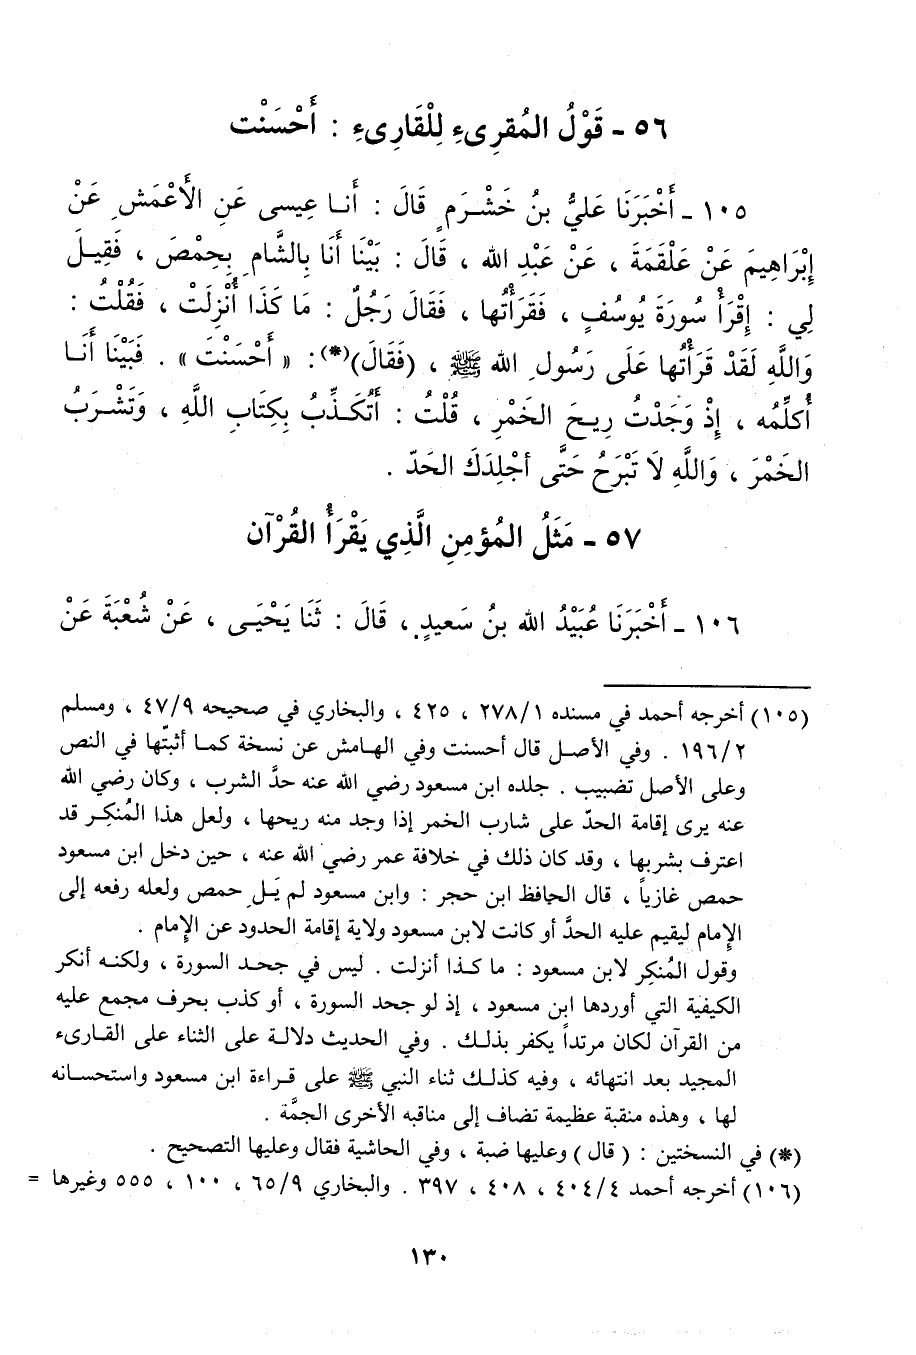 ٥٦ ـ قَوْلُ المُقرِىءِ لِلْقَارِىءِ : أَحْسَنْت
١٠٥ ـ أَخْبَرَنَا عَليُّ بنُ خَشْرَمٍ قَالَ : أَنـا عِيسى عَنِ الأَعْمَشِ عَنْ
إِبْرَاهِيمَ عَنْ عَلْقَمَةَ ، عَنْ عَبْدِ الله ، قَالَ : بَيْنَا أَنَا بِالشَّامِ بِحِمْصَ ، فَقِيـلَ
لِي : إِقْرَأْ سُورَةَ يُوسُفٍ ، فَقَرَأْتُها ، فَقَالَ رَجُلٌ : مَا كَذَا أُنْزِلَتْ ، فَقُلْتُ :
وَاللَّهِ لَقَدْ قَرَأْتُها عَلَى رَسُولِ الله ﷺ ، (فَقَالَ)(*): « أَحْسَنْتَ » . فَبَيْنَا أَنَـا
أُكلِّمُه ، إِذْ وَجَدْتُ رِيـحَ الخَمْرِ ، قُلْتُ : أَتُكَـذِّبُ بِكِتَابِ اللَّهِ ، وَتَشْـرَبُ
الخَمْرَ ، وَاللَّهِ لَا تَبْرَحُ حَتَّى أجْلِدَكَ الحَدّ .
٥٧ ـ مَثَلُ المُؤمِنِ الَّذِي يَقْرَأُ القُرْآن
١٠٦ ـ أَخْبَرَنَا عُبَيْدُ الله بنُ سَعيدٍ ، قَالَ : ثَنَا يَحْيَـى ، عَنْ شُعْبَةَ عَنْ
(١٠٥) أخرجه أحمد في مسنده ٢٧٨/١ ، ٤٢٥ ، والبخاري في صحيحه ٤٧/٩ ، ومسلم
١٩٦/٢ . وفي الأصـل قال أحسنت وفي الهـامش عن نسخة كمـا أثبتّها في النص
وعلى الأصل تضبيب . جلده ابن مسعود رضي الله عنه حدَّ الشرب ، وكان رضي الله
عنه يرى إقامة الحدّ على شارب الخمر إذا وجد منه ريحها ، ولعل هذا المُنكِـر قد
اعترف بشربها ، وقد كان ذلك في خلافة عمر رضي الله عنه ، حين دخل ابن مسعود
حمص غازياً ، قال الحافظ ابن حجر : وابن مسعود لم يَـلِ حمص ولعله رفعه إلى
الإمام ليقيم عليه الحدَّ أو كانت لابن مسعود ولاية إقامة الحدود عن الإمام .
وقول المُنكِر لابن مسعود : ما كـذا أنزلت . ليس في جحـد السورة ، ولكنـه أنكر
الكيفية التي أوردها ابن مسعود ، إذ لو جحد السورة ، أو كذب بحرف مجمع عليه
من القرآن لكان مرتداً يكفر بذلـك . وفي الحديث دلالـة على الثناء على القـارىء
المجيد بعد انتهائه ، وفيه كذلـك ثناء النبي ﷺ على قـراءة ابن مسعود واستحسـانه
لها ، وهذه منقبة عظيمة تضاف إلى مناقبه الأخرى الجمَّة .
(*) في النسختين : ( قال ) وعليها ضبة ، وفي الحاشية فقال وعليها التصحيح .
(١٠٦) أخرجه أحمد ٤٠٤/٤ ، ٤٠٨ ، ٣٩٧ . والبخاري ٦٥/٩ ، ١٠٠ ، ٥٥٥ وغيرها =
١٣٠